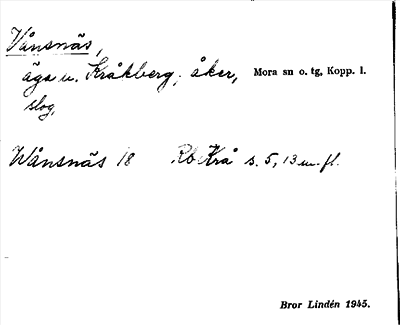 Vånsnäs,
äga u. Kråkberg; åker, Mora sn o. tg, Kopp. l.
slog,
Wånsnäs 18 Rb Krå s. 5, 13 m. fl.
Bror Lindén 1945.